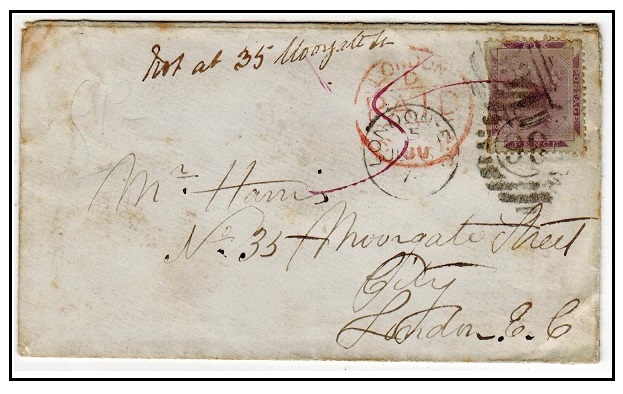 Not at 35 Moorgate St
LONDON
LONDON·E.C
5
JU
SIX
POSTAGE
PENCE
Mr. Harris
No. 35 Moorgate Street
City
London. E. C